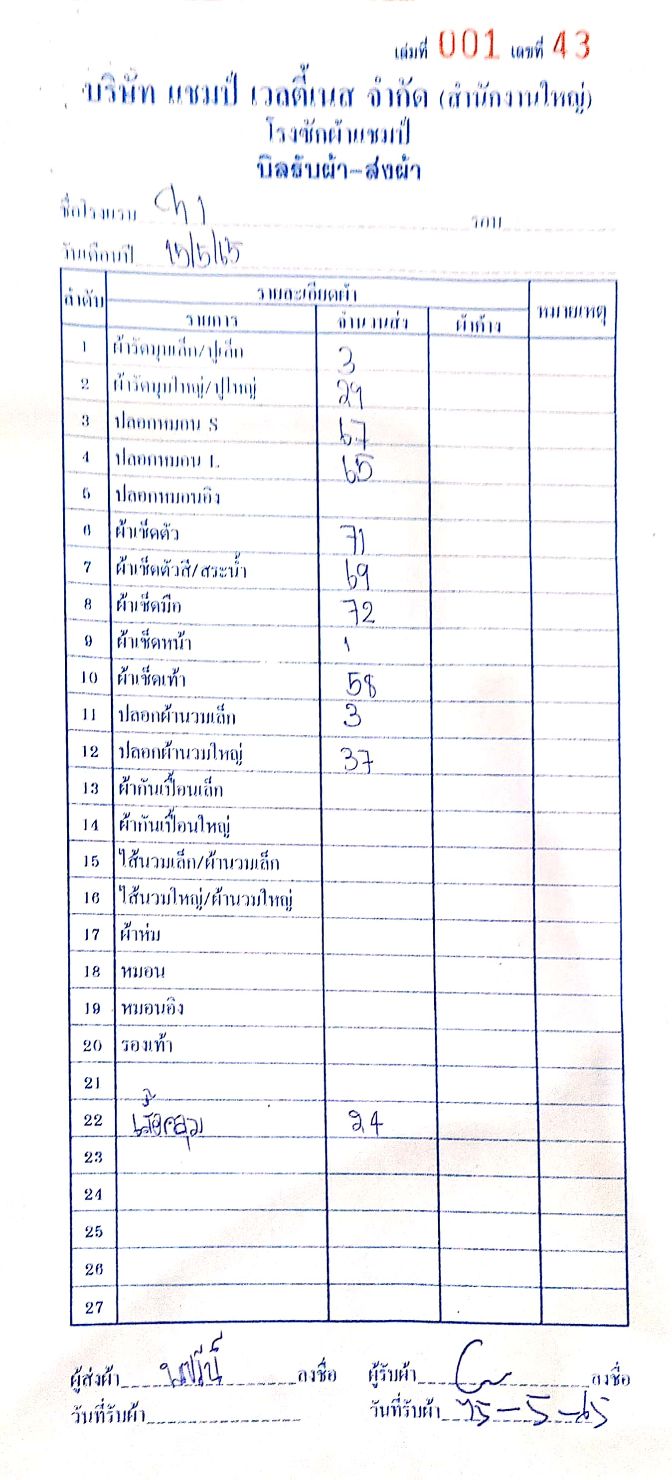 เล่มที่ 001 เลขที่ 43
บริษัท แชมป์ เวลตี้เนส จำกัด (สำนักงานใหญ่)
โรงซักผ้าแชมป์
บิลรับผ้า-ส่งผ้า
ชื่อโรงแรม รอบ
วันเดือนปี 15/5/65
ลำดับ รายละเอียดผ้า หมายเหตุ
รายการ จำนวนส่ง ผ้าค้าง
1 ผ้ารัดมุมเล็ก/ปูเล็ก 3
2 ผ้ารัดมุมใหญ่/ปูใหญ่ 29
3 ปลอกหมอน S 67
4 ปลอกหมอน L 65
5 ปลอกหมอนอิง
6 ผ้าเช็ดตัว 71
7 ผ้าเช็ดตัวสี/สระน้ำ 69
8 ผ้าเช็ดมือ 72
9 ผ้าเช็ดหน้า 1
10 ผ้าเช็ดเท้า 58
11 ปลอกผ้านวมเล็ก 3
12 ปลอกผ้านวมใหญ่ 37
13 ผ้ากันเปื้อนเล็ก
14 ผ้ากันเปื้อนใหญ่
15 ไส้นวมเล็ก/ผ้านวมเล็ก
16 ไส้นวมใหญ่/ผ้านวมใหญ่
17 ผ้าห่ม
18 หมอน
19 หมอนอิง
20 รองเท้า
21
22 เสื้อคลุม 24
23
24
25
26
27
ผู้ส่งผ้า ลงชื่อ ผู้รับผ้า ลงชื่อ
วันที่รับผ้า วันที่รับผ้า 15-5-65